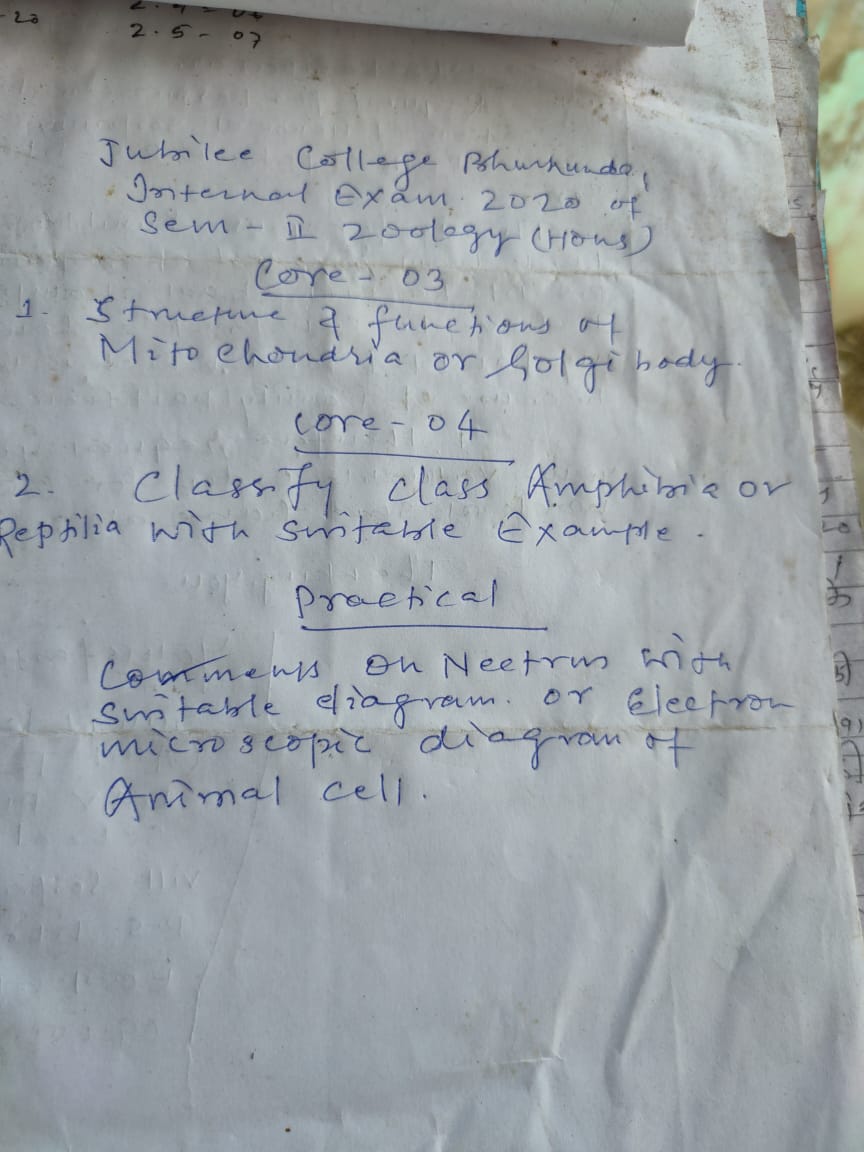 - 20
2.5 - 07
Jubilee College Bhurkunda,
Internal Exam. 2020 of
Sem - II Zoology (Hons)
Core - 03
1. Structure & functions of
Mitochondria or Golgi body.
core - 04
2. Classify class Amphibia or
Reptilia with suitable Example.
Practical
Comments on Necturus with
suitable diagram. or Electron
microscopic diagram of
Animal cell.